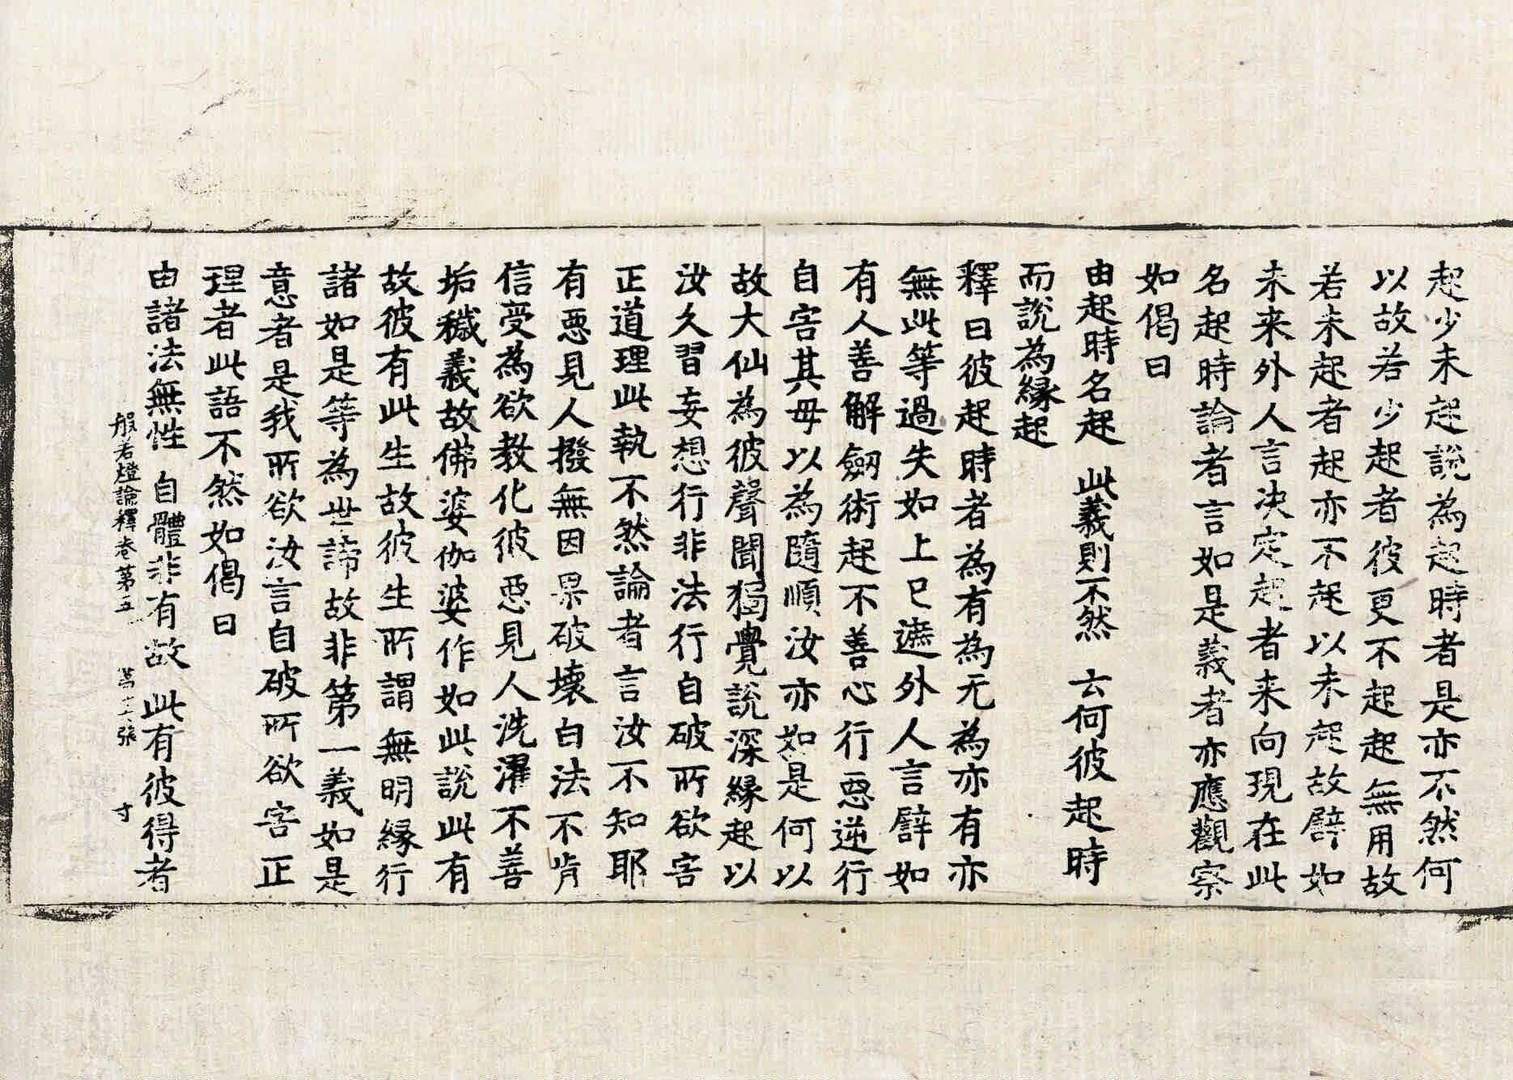 起少未起說為起時者是亦不然何
以故若少起者彼更不起起無用故
若未起者起亦不起以未起故譬如
未来外人言决定起者来向現在此
名起時論者言如是義者亦應觀察
如偈曰
由起時名起 此義則不然 云何彼起時
而說為縁起
釋曰彼起時者為有為无為亦有亦
無此等過失如上已遮外人言譬如
有人善解劒術起不善心行惡逆行
自害其母以為隨順汝亦如是何以
故大仙為彼聲聞獨覺說深縁起以
汝久習妄想行非法行自破所欲害
正道理此執不然論者言汝不知耶
有惡見人撥無因果破壞白法不肯
信受為欲教化彼惡見人洗濯不善
垢穢義故佛婆伽婆作如此說此有
故彼有此生故彼生所謂無明縁行
諸如是等為世諦故非第一義如是
意者是我所欲汝言自破所欲害正
理者此語不然如偈曰
由諸法無性 自體非有故 此有彼得者
般若燈論釋卷第五 第十六張 寸